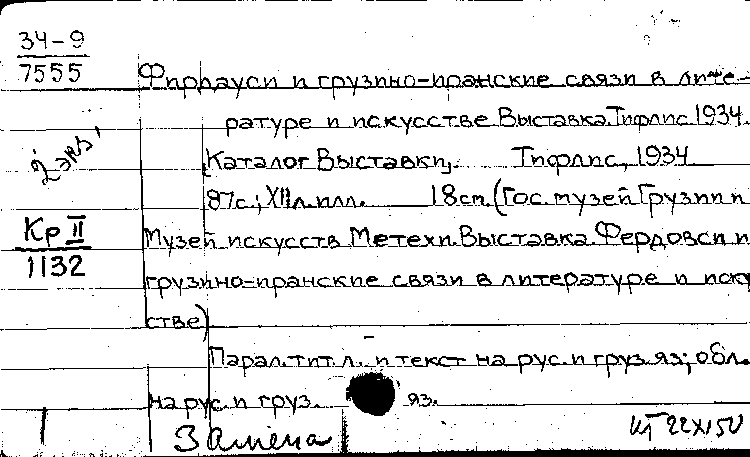 34-9
7555
Фирдауси и грузино-иранские связи в лите-
ратуре и искусстве. Выставка. Тифлис. 1934.
2 экз.
[Каталог Выставки]. Тифлис, 1934
87с.; XII л. илл. 18см. (Гос. музей Грузии и
Кр II
1132
Музей искусств Метехи. Выставка. Фердовси и
грузино-иранские связи в литературе и иску
стве)
Парал. тит. л. и текст на рус. и груз. яз; обл.
на рус. и груз. яз.
Замена